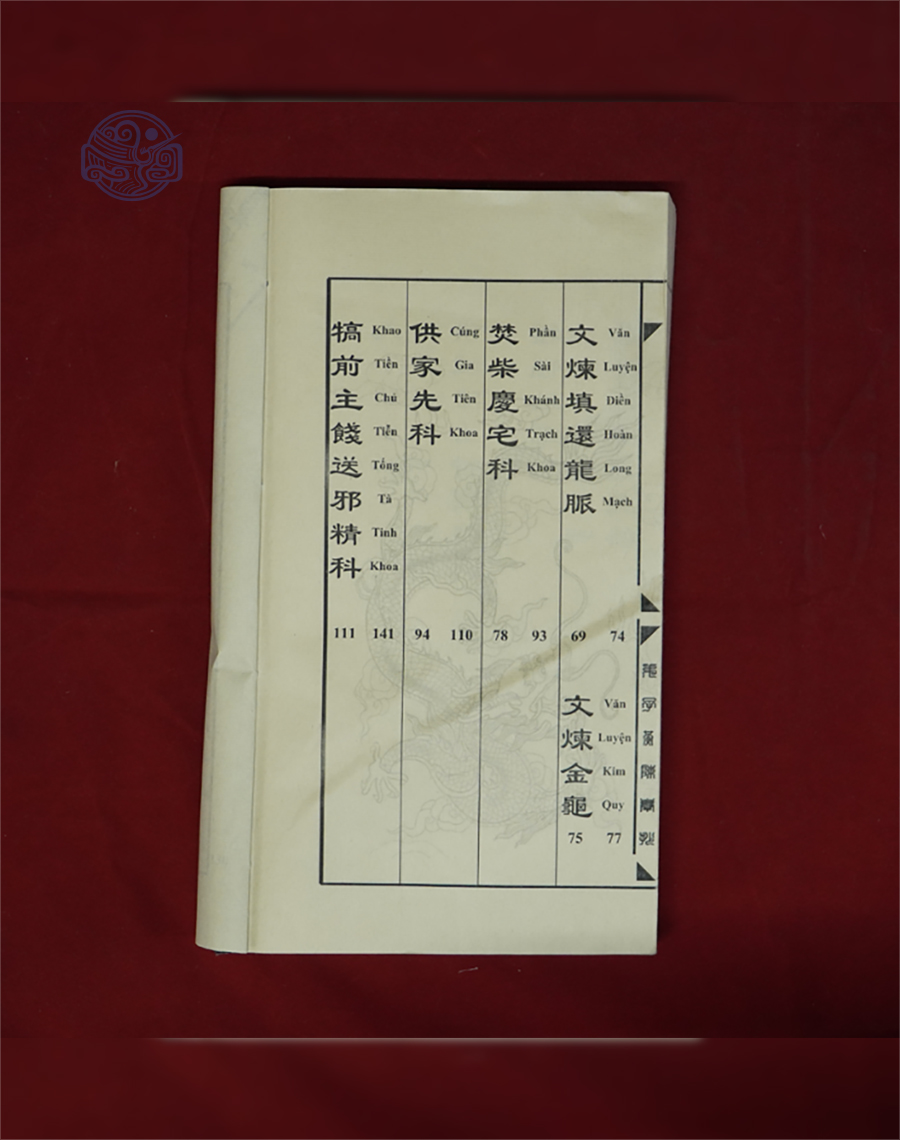 文煉填還龍脈
Văn Luyện Điền Hoàn Long Mạch
69 74
文煉金龜
Văn Luyện Kim Quy
75 77
焚柴慶宅科
Phần Sài Khánh Trạch Khoa
78 93
供家先科
Cúng Gia Tiên Khoa
94 110
犒前主餞送邪精科
Khao Tiền Chủ Tiễn Tống Tà Tinh Khoa
111 141